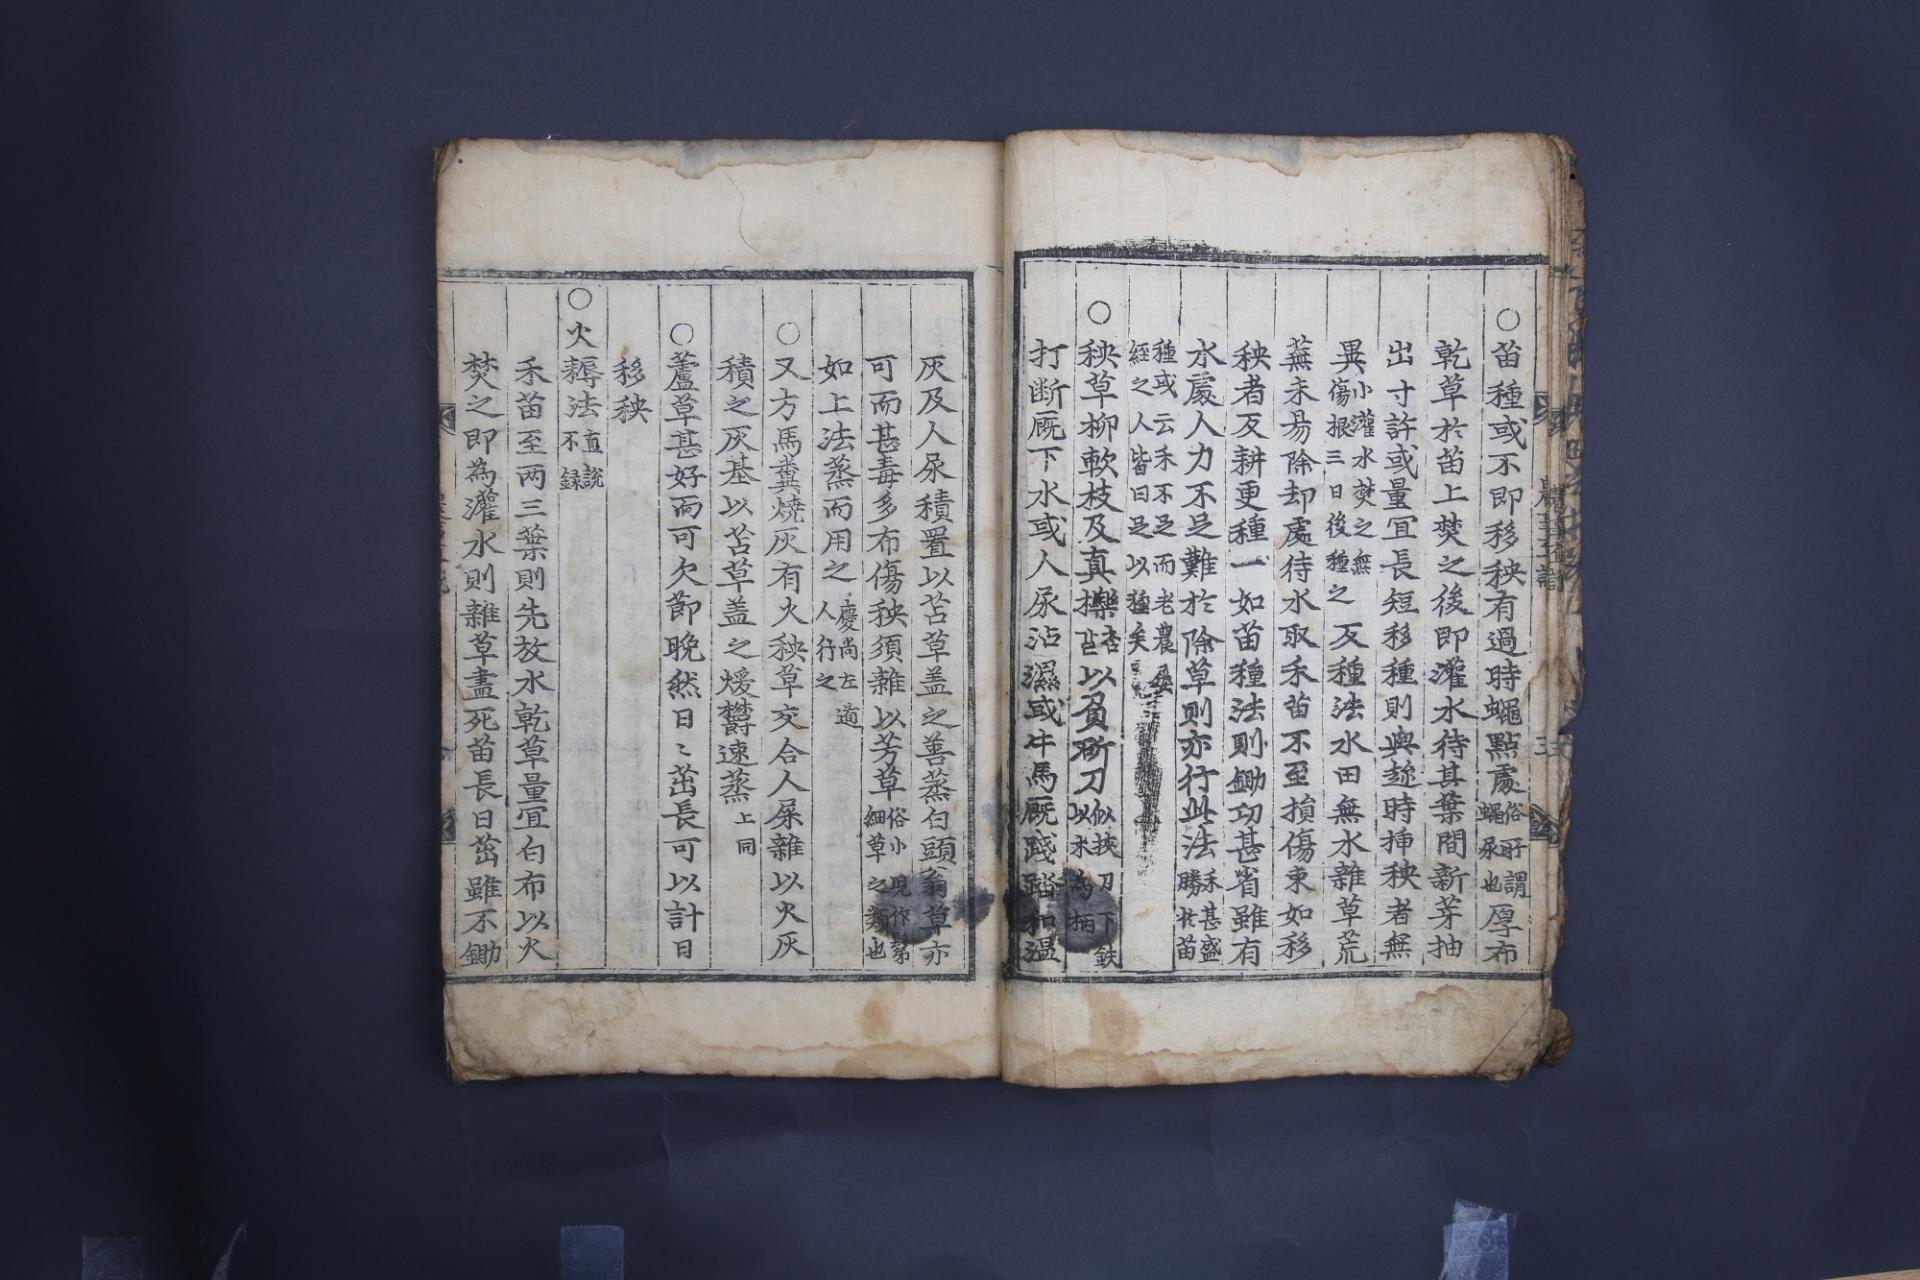 ○苗種或不即移秧有過時蠅點處俗所謂蠅尿也厚布
乾草於苗上焚之後即灌水待其葉間新芽抽
出寸許或量冝長短移種則與趂時揷秧者無
異小灌水焚之無傷根三日後種之反種法水田無水雜草荒
蕪未昜除却處待水取禾苗不至損傷束如移
秧者反耕更種一如苗種法則鋤功甚省雖有
水處人力不足難於除草則亦行此法禾甚盛勝於苗
種或云禾不足而老農經之人皆曰足以種矣
○秧草柳軟枝及真櫟以刀似挾刀下鉄以木為柄
打断厩下水或人尿沾濕或牛馬厩踐踏和温
灰及人尿積置以苫草盖之善蒸白頭翁草亦
可而甚毒多布傷秧須雜以芳草俗小細草之類也
如上法蒸而用之慶尚左道人行之
○又方馬糞燒灰有火秧草交合人屎雜以火灰
積之灰基以苫草盖之煖欝速蒸上同
○蘆草甚好而可欠節晩然日〻茁長可以計日
移秧
○火耨法直說不録
禾苗至两三葉則先放水乾草量冝白布以火
焚之即為灌水則雜草盡死苗長日茁雖不鋤